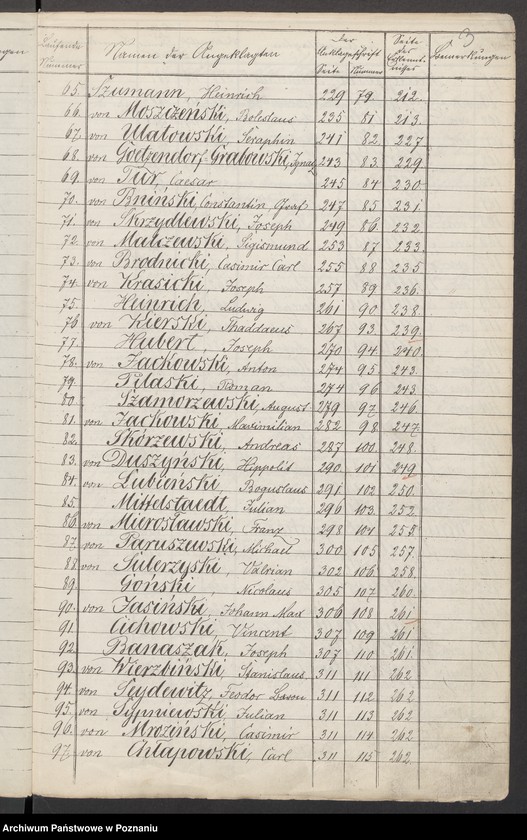 3
Laufende Nummer | Namen der Angeklagten | Der Anklageschrift Seite | Nummer | Seite des Erkenntnisses | Bemerkungen
65. Szumann, Heinrich 229 79 212.
66. von Moszczeński, Boleslaus 235 81 213.
67. von Ulatowski, Seraphin 241 82 227
68. von Goetzendorf-Grabowski, Ignatz 243 83 229
69. von Tur, Caesar 245 84 230
70. von Bniński, Constantin Graf 247 85 231
71. von Skrzydlewski, Joseph 249 86 232
72. von Malczewski, Sigismund 253 87 233.
73. von Brodnicki, Casimir Carl 255 88 235
74. von Krasicki, Joseph 257 89 236.
75. Heinrich, Ludwig 261 90 238
76 von Kierski, Thaddaeus 267 93. 239.
77. Hubert, Joseph 270 94. 240.
78. von Jackowski, Anton 274 95 243.
79. Pilaski, Roman 274 96 243.
80. Szamorzewski, August 279 97 246.
81. von Jackowski, Maximilian 282 98 247
82. Skorzewski, Andreas 287 100. 248.
83. von Duszyński, Hippolit 290. 101 249
84. von Łubieński, Boguslaus 291 102 250.
85. Mittelstaedt, Julian 296 103 252.
86. von Mierosławski, Franz 298 104 255.
87. von Paruszewski, Michael 300 105 257.
88 von Sulerzyski, Valrian 302 106. 258.
89. Goński, Nicolaus 305 107 260.
90. von Jasiński, Johann Max 306 108. 261
91. Cichowski, Vincent 307 109 261
92 Banaszak, Joseph 307 110 261
93. von Wierzbiński, Stanislaus 311 111 262
94. von Seydewitz, Feodor Baron 311 112 262
95. von Sypniewski, Julian 311 113 262
96. von Mroziński, Casimir 311 114 262
97. von Chłapowski, Carl 311 115 262.
Archiwum Państwowe w Poznaniu